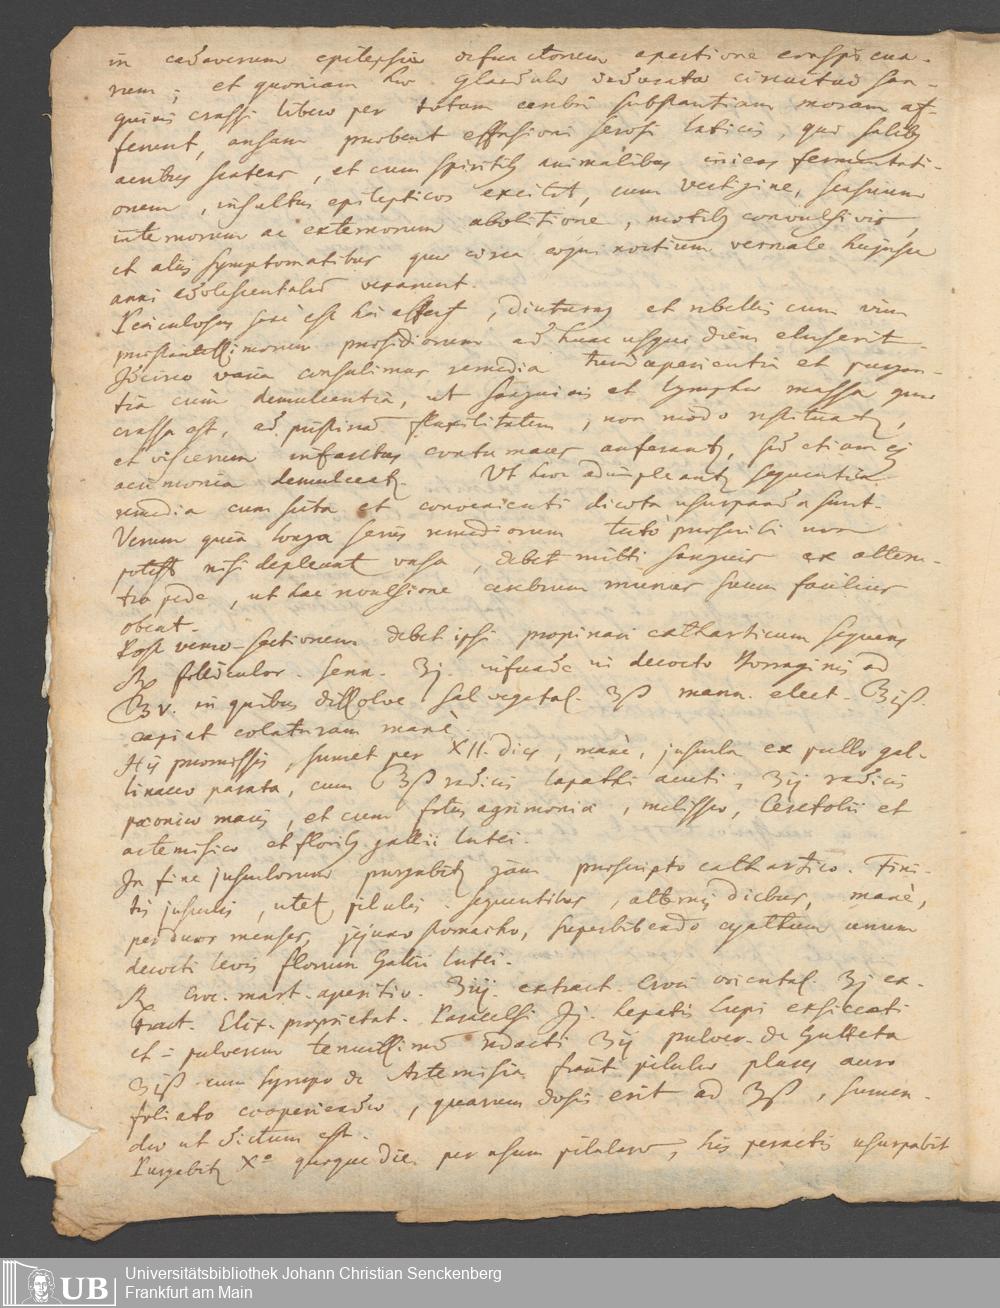 in cadaverum epilepsia defunctorum apertione conspicua-
rem; et quoniam hæ glandulæ induratæ circuitus san-
guinis crassi libero per totam cerebri substantiam moram af-
ferunt, ansam præbent effusioni serosi laticis, qui salibus
acribus scatens, et cum spiritibus animalibus iniens fermentati-
onem, insultus epilepticos excitat, cum vertigine, sensuum
internorum ac externorum abolitione, motibus convulsivis,
et aliis symptomatibus quæ circa æquinoctium vernale hujusce
anni
Periculosus sane est hic affectus, diuturnus et rebellis cum vim
præstantissimorum præsidiorum ad hunc usque diem eluserit.
Idcirco varia consulimus remedia tum aperientia et purgan-
tia cum demulcentia, ut sanguinis et lymphæ massa quæ
crassa est, ad pristinam fluxilitatem, non modo restituatur,
et viscerum infarctus contumaces auferantur, sed etiam ejus
acrimonia demulceatur. Ut hæc adimpleantur sequentia
remedia cum suta et convenienti diæta usurpanda sunt.
Verum quia longa series remediorum tuto præscribi non
potest nisi depleantur vasa, debet mitti sanguis ex alteru-
tro pede, ut hac revulsione cerebrum munus suum facilius
obeat.
Post venæ-sectionem debet ipsi propinari catharticum sequens
℞ folliculor. senn. ʒj. infunde in decocto Borraginis ad
℥v. in quibus dissolve sal vegetal. ʒß mann. elect. ℥iß.
capiat colaturam manè.
His præmissis, sumet per XII. dies, manè, juscula ex pullo gal-
linaceo parata, cum ℥ß radicis lapathi acuti, ʒij radicis
pæoniæ maris, et cum foliis agrimoniæ, melissæ, Cerefolii et
artemisiæ et floribus gallii lutei.
In fine jusculorum purgabitur jam præscripto cathartico. Fini-
tis jusculis, utetur pilulis sequentibus, alternis diebus, manè,
per duos menses, jejuno stomacho, superbibendo cyathum unum
decocti levis florum Gallii lutei.
℞ Croc. mart. aperitiv. ʒiij. extract. Croci oriental. ʒj ex-
tract. Elix. proprietat. Paracelsi ʒj. hepatis Lupi exsiccati
et in pulverem tenuissimum redacti ʒij pulver. de Gutteta
ʒiß cum syrupo de Artemisia fiant pilulæ plures auro
foliato cooperiendæ, quarum dosis erit ad ʒß, sumen-
dæ ut dictum est.
Purgabitur Xº quoque die per usum pilularum, his peractis usurpabit
UB
Universitätsbibliothek Johann Christian Senckenberg
Frankfurt am Main